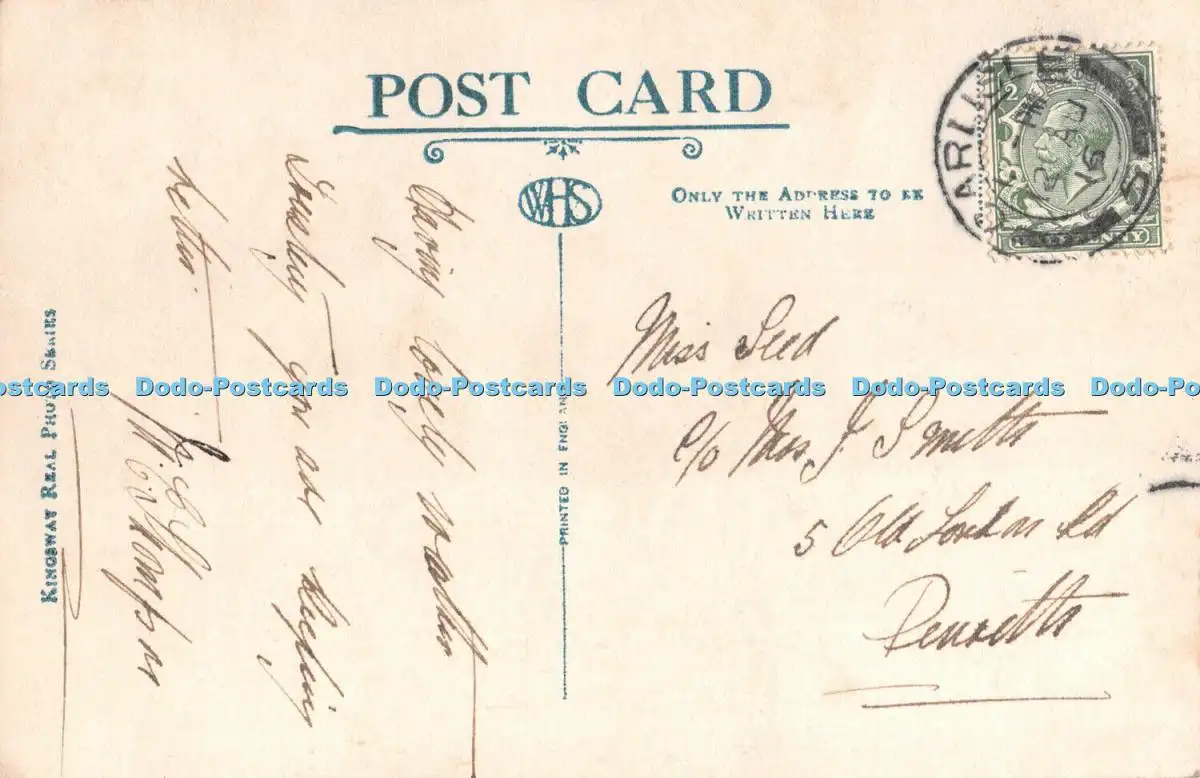 POST CARD
WHS
ONLY THE ADDRESS TO BE
WRITTEN HERE
ARLI
PM
AU
16
HALFPENNY
Having lovely weather
Trusting you are keeping
better.
Thompson
Miss Seed
c/o Mrs J Smith
5 Old London Rd
Penrith
KINGSWAY REAL PHOTO SERIES
PRINTED IN ENGLAND
Dodo-Postcards Dodo-Postcards Dodo-Postcards Dodo-Postcards Dodo-Postcards